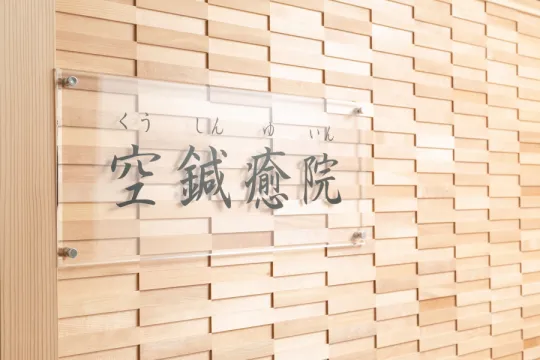 くう しん ゆ いん
空鍼癒院